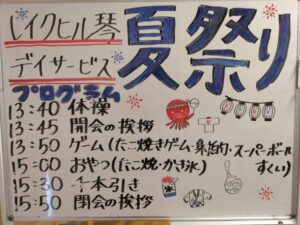 レイクヒル琴
デイサービス
夏祭り
プログラム
13:40 体操
13:45 開会の挨拶
13:50 ゲーム(たこ焼きゲーム・射的・スーパーボール
すくい)
15:00 おやつ(たこ焼・かき氷)
15:30 千本引き
15:50 閉会の挨拶